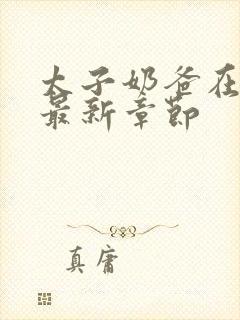 太子奶爸在
最新章节
真庸